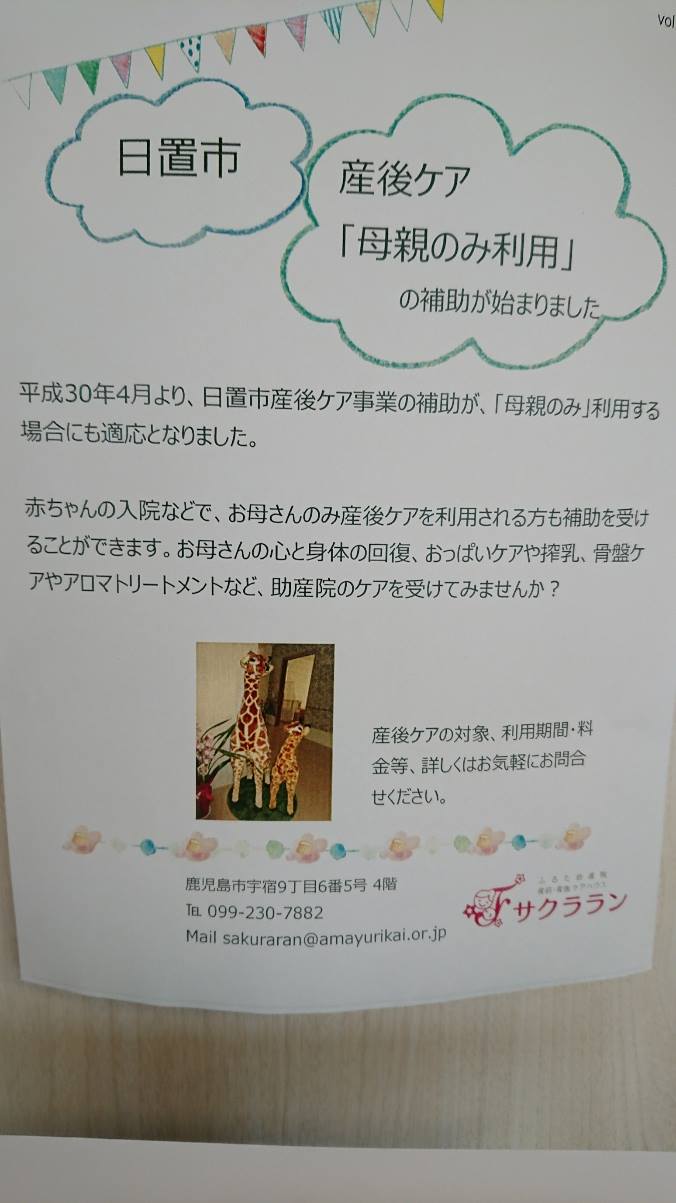 Vol
日置市
産後ケア
「母親のみ利用」
の補助が始まりました
平成30年4月より、日置市産後ケア事業の補助が、「母親のみ」利用する
場合にも適応となりました。
赤ちゃんの入院などで、お母さんのみ産後ケアを利用される方も補助を受け
ることができます。お母さんの心と身体の回復、おっぱいケアや搾乳、骨盤ケ
アやアロマトリートメントなど、助産院のケアを受けてみませんか？
産後ケアの対象、利用期間・料
金等、詳しくはお気軽にお問合
せください。
鹿児島市宇宿9丁目6番5号 4階
℡ 099-230-7882
Mail sakuraran@amayurikai.or.jp
ふるた助産院
産前・産後ケアハウス
サクララン